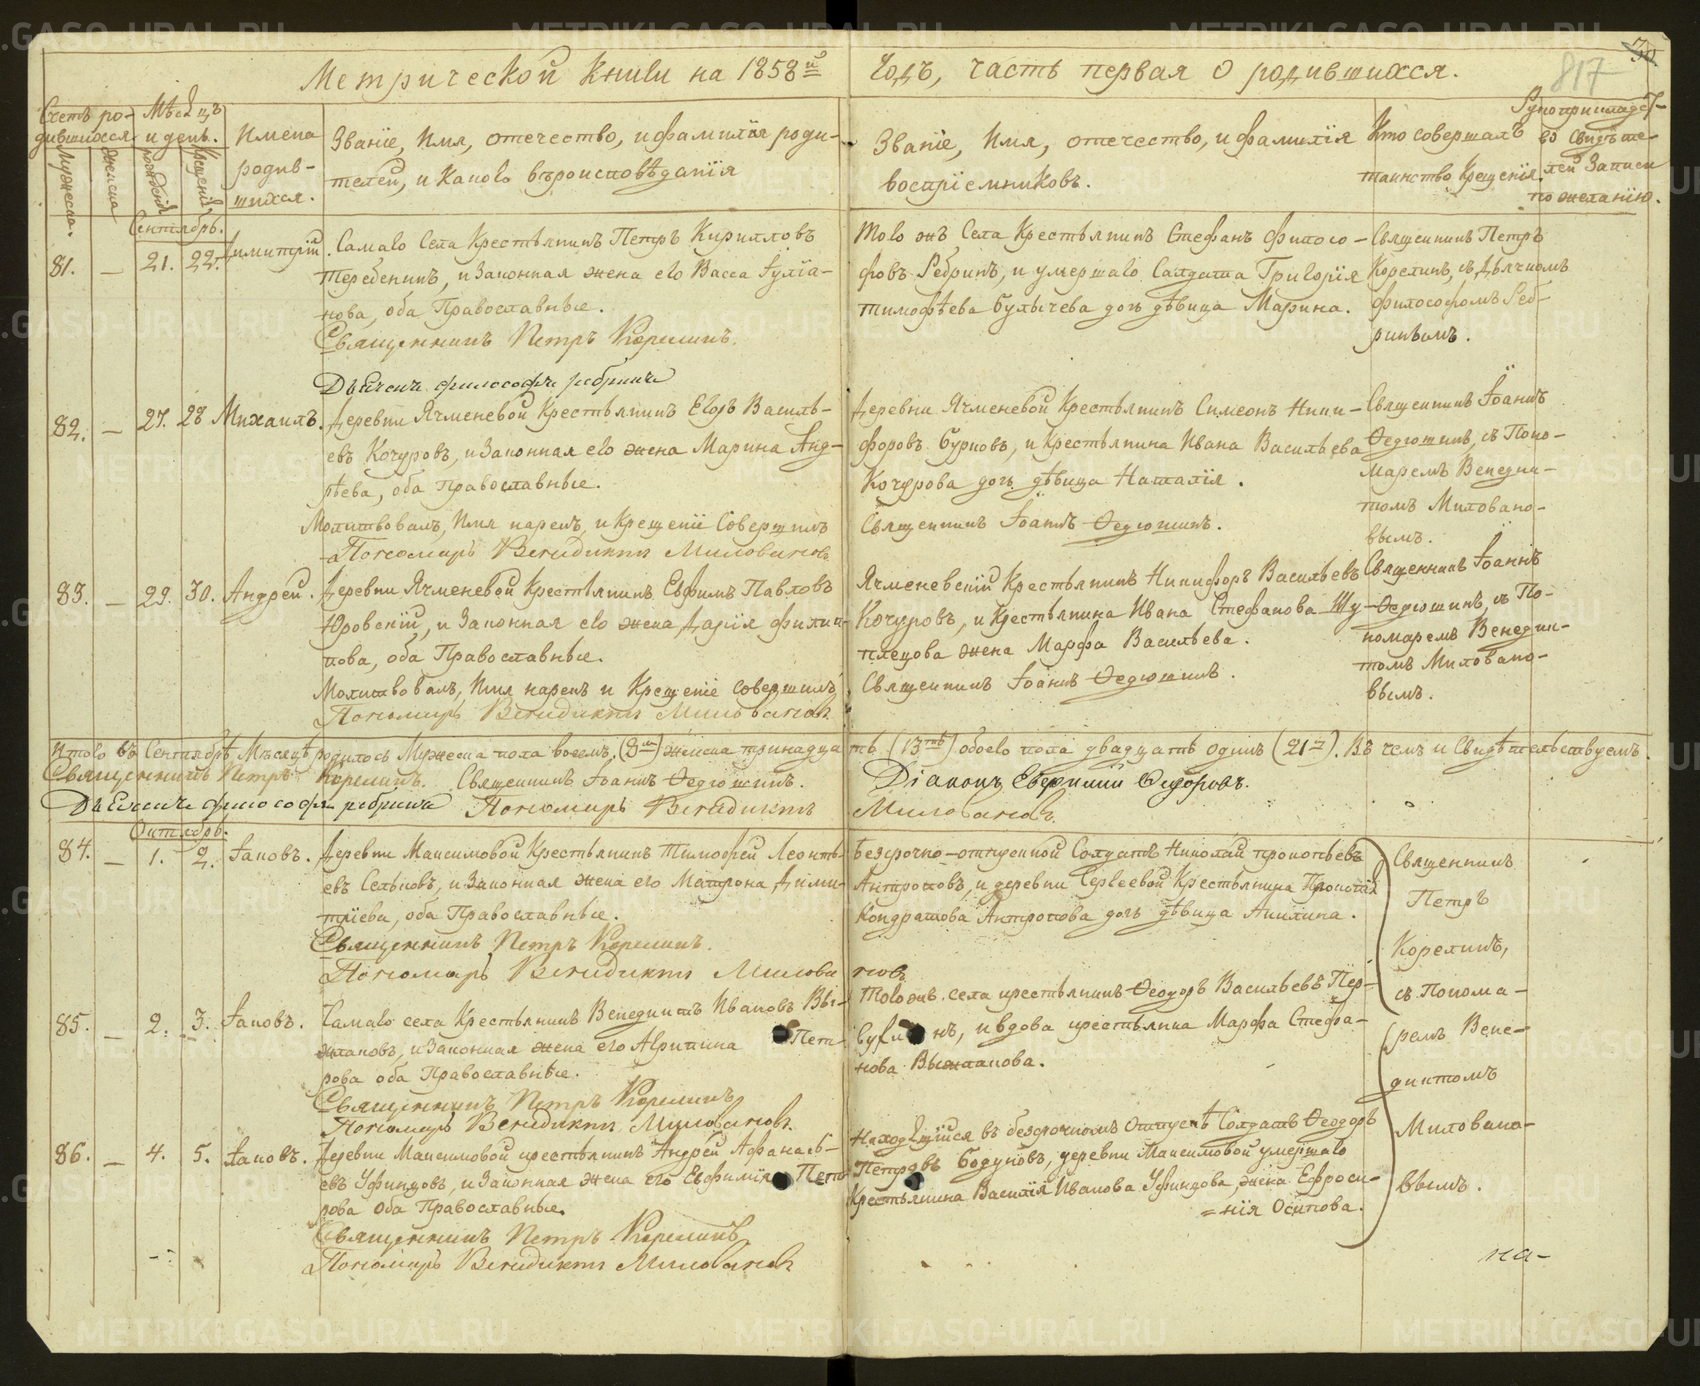 Метрической книги на 1858й Годъ, часть первая о родившихся.
817
30.
Счетъ ро-
дившихся
Мужеска.
Женска
Мѣсяцъ
и день.
Рожденія
Крещенія
Имена
родив-
шихся.
Званіе, Имя, отечество, и фамилія роди-
телей, и каково вѣроисповѣданія
Званіе, Имя, отечество, и фамилія
воспріемниковъ.
Кто совершалъ
таинство Крещенія.
Рукоприкладст-
во свидѣте-
лей Записи
по желанію.
Сентябрь.
81. — 21. 22. Димитрій.
Самаго Села Крестьянинъ Петръ Кирилловъ
Теребенинъ, и Законная жена его Васса Гуліа-
нова, оба Православные.
Священникъ Петръ Корелинъ.
Дьячекъ философъ ребринъ
Того жъ Села Крестьянинъ Стефанъ Филосо-
фовъ Ребринъ, и умершаго Салдата Григорія
Тимофѣева Булычева дочь дѣвица Марина.
Священникъ Петръ
Корелинъ, съ Дьячкомъ
философомъ Реб-
ринымъ.
82. — 27. 28 Михаилъ.
Деревни Ячменевой Крестьянинъ Егоръ Василь-
евъ Кочуровъ, и Законная его жена Марина Анд-
рѣева, оба православные.
Молитвовалъ, Имя нарекъ, и Крещеніе Совершилъ
Пономарь Венидиктъ Миловановъ
Деревни Ячменевой Крестьянинъ Симеонъ Ники-
форовъ Бурковъ, и Крестьянина Ивана Васильева
Кочурова дочь дѣвица Наталія.
Священникъ Іоаннъ Ѳедюшинъ.
Священникъ Іоаннъ
Ѳедюшинъ, съ Поно-
маремъ Венедик-
томъ Миловано-
вымъ.
83. — 29. 30. Андрей.
Деревни Ячменевой Крестьянинъ Ефимъ Павловъ
Юровскій, и Законная его жена Дарія Филип-
пова, оба Православные.
Молитвовалъ, Имя нарекъ и Крещеніе совершилъ
Пономарь Венидиктъ Миловановъ
Ячменевскій Крестьянинъ Никифоръ Васильевъ
Кочуровъ, и Крестьянина Ивана Стефанова Шу-
плецова жена Марфа Васильева.
Священникъ Іоаннъ Ѳедюшинъ.
Священникъ Іоаннъ
Ѳедюшинъ, съ По-
номаремъ Венедик-
томъ Миловано-
вымъ.
Итого въ Сентябрѣ Мѣсяцѣ родилось Мужеска пола восемь, (8мь) женска тринадцать (13ть) обоего пола двадцать одинъ (21нъ). Въ чемъ и Свидѣтельствуемъ
Священникъ Петръ Корелинъ. Священникъ Іоаннъ Ѳедюшинъ. Діаконъ Евфимій Ѳедоровъ.
Дьячекъ философъ ребринъ Пономарь Венидиктъ Миловановъ.
Октябрь.
84. — 1. 2. Іаковъ.
Деревни Максимовой Крестьянинъ Тимофей Леонть-
евъ Сельковъ, и Законная жена его Матрона Дими-
тріева, оба Православные.
Священникъ Петръ Корелинъ.
Пономарь Венидиктъ Миловановъ
Безсрочно-отпускной Солдатъ Николай прокопьевъ
Антроповъ, и деревни Сергѣевой Крестьянина Прокопія
Кондратова Антропова дочь дѣвица Акилина.
85. — 2. 3. Іаковъ.
Самаго села Крестьянинъ Венедиктъ Ивановъ Вы-
жлаковъ, и Законная жена его Агрипина Пет-
рова оба Православные.
Священникъ Петръ Корелинъ
Пономарь Венидиктъ Миловановъ.
Того жъ села крестьянинъ Ѳеодоръ Васильевъ Пер-
нъ, и вдова крестьянка Марфа Стефа-
нова Выжлакова.
86. — 4. 5. Іаковъ.
Деревни Максимовой крестьянинъ Андрей Афанась-
евъ Уфинцовъ, и Законная жена его Евфимія Пет-
рова Оба Православные.
Священникъ Петръ Корелинъ
Пономарь Венидиктъ Миловановъ
Находящійся въ безсрочномъ Отпускѣ Солдатъ Ѳеодоръ
Петровъ Бодуновъ, деревни Максимовой умершаго
Крестьянина Василія Иванова Уфинцова, жена Ефроси-
=нія Осипова.
Священникъ
Петръ
Корелинъ,
съ Понома-
ремъ Вене-
диктомъ
Миловано-
вымъ.
на-
METRIKI.GASO-URAL.RU